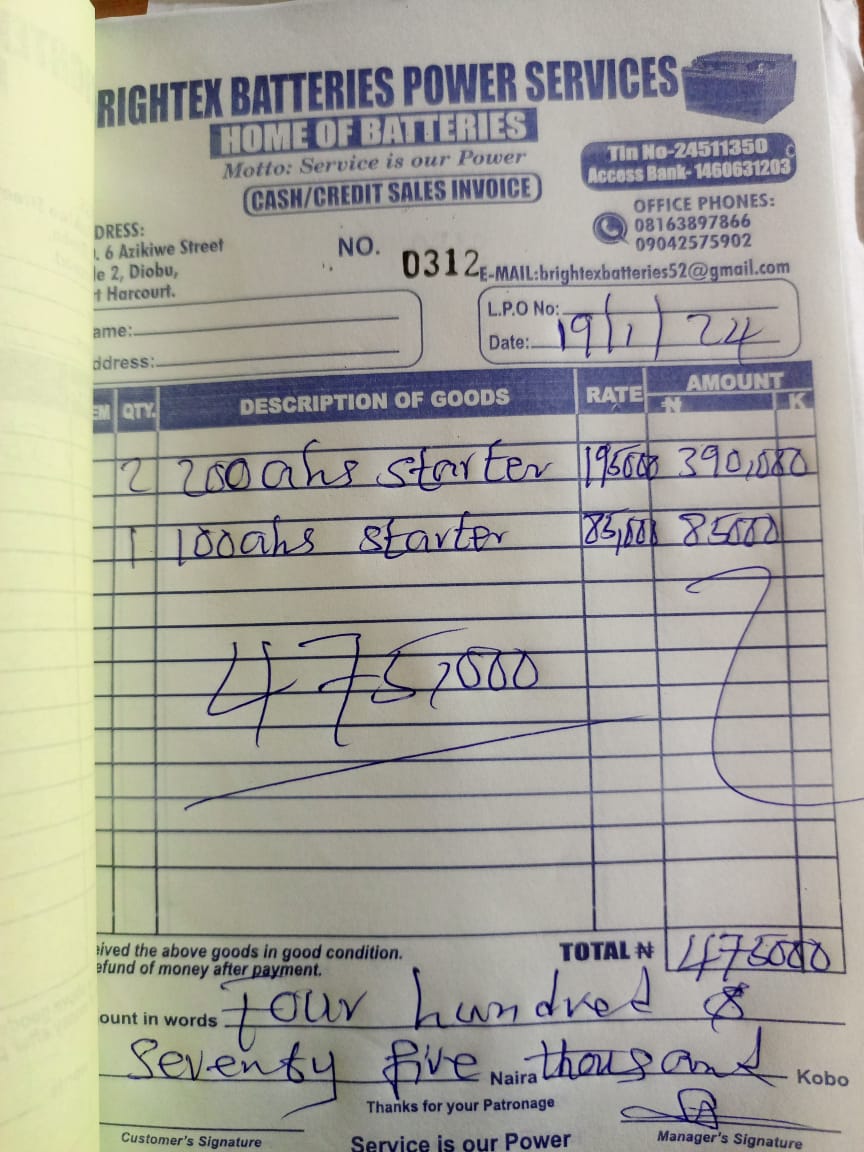 RIGHTEX BATTERIES POWER SERVICES
HOME OF BATTERIES
Motto: Service is our Power
CASH/CREDIT SALES INVOICE
Tin No-24511350
Access Bank-1460631203
OFFICE PHONES:
08163897866
09042575902
DRESS:
. 6 Azikiwe Street
le 2, Diobu,
t Harcourt.
NO. 0312
E-MAIL:brightexbatteries52@gmail.com
ame:
ddress:
L.P.O No:
Date: 19/1/24
EM QTY. DESCRIPTION OF GOODS RATE AMOUNT
₦ K
2 200ahs starter 195000 390,000
1 100ahs starter 85,000 85000
475,000
eived the above goods in good condition.
efund of money after payment.
TOTAL ₦ 475000
ount in words four hundred &
Seventy five Naira thousand Kobo
Thanks for your Patronage
Customer's Signature
Service is our Power
Manager's Signature